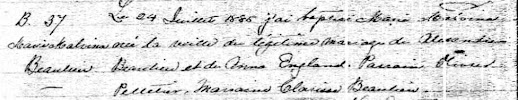 B. 37 Le 24 Juillet 1885 j'ai baptisé Marie Malvina
Marie Malvina née la veille du légitime mariage de Alexandre
Beaulieu Beaulieu et de Anna England. Parrain Olivier
Pelletier, Marraine Clarisse Beaulieu.